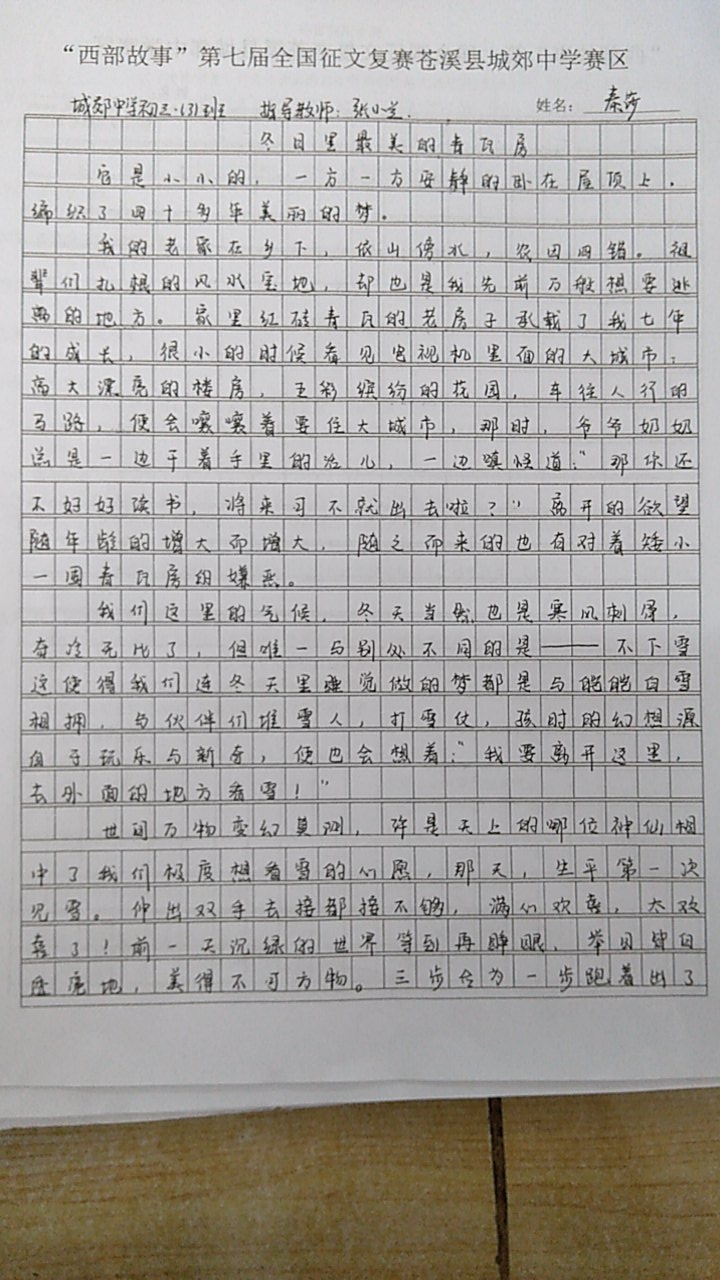 “西部故事”第七届全国征文复赛苍溪县城郊中学赛区
城郊中学初三·(3)班 指导教师:张小兰. 姓名:秦莎
冬日里最美的青瓦房
它是小小的,一方一方安静的卧在屋顶上,
编织了四十多年美丽的梦。
我的老家在乡下,依山傍水,农田四错。祖
辈们扎根的风水宝地,却也是我先前万般想要逃
离的地方。家里红砖青瓦的老房子承载了我七年
的成长,很小的时候看见电视机里面的大城市:
高大漂亮的楼房,五彩缤纷的花园,车往人行的
马路,便会嚷嚷着要住大城市,那时,爷爷奶奶
总是一边干着手里的活儿,一边嗔怪道:“那你还
不好好读书,将来可不就出去啦?”离开的欲望
随年龄的增大而增大,随之而来的也有对着矮小
一圈青瓦房的嫌恶。
我们这里的气候,冬天当然也是寒风刺骨,
奇冷无比了,但唯一与别处不同的是——不下雪
这便得我们连冬天里睡觉做的梦都是与皑皑白雪
相拥,与伙伴们堆雪人,打雪仗,孩时的幻想源
自于玩乐与新奇,便也会想着:“我要离开这里,
去外面的地方看雪!”
世间万物变幻莫测,许是天上的哪位神仙相
中了我们极度想看雪的心愿,那天,生平第一次
见雪。伸出双手去接都接不够,满心欢喜,太欢
喜了!前一天沉绿的世界等到再睁眼,举目皆白
茫茫地,美得不可方物。三步合为一步跑着出了